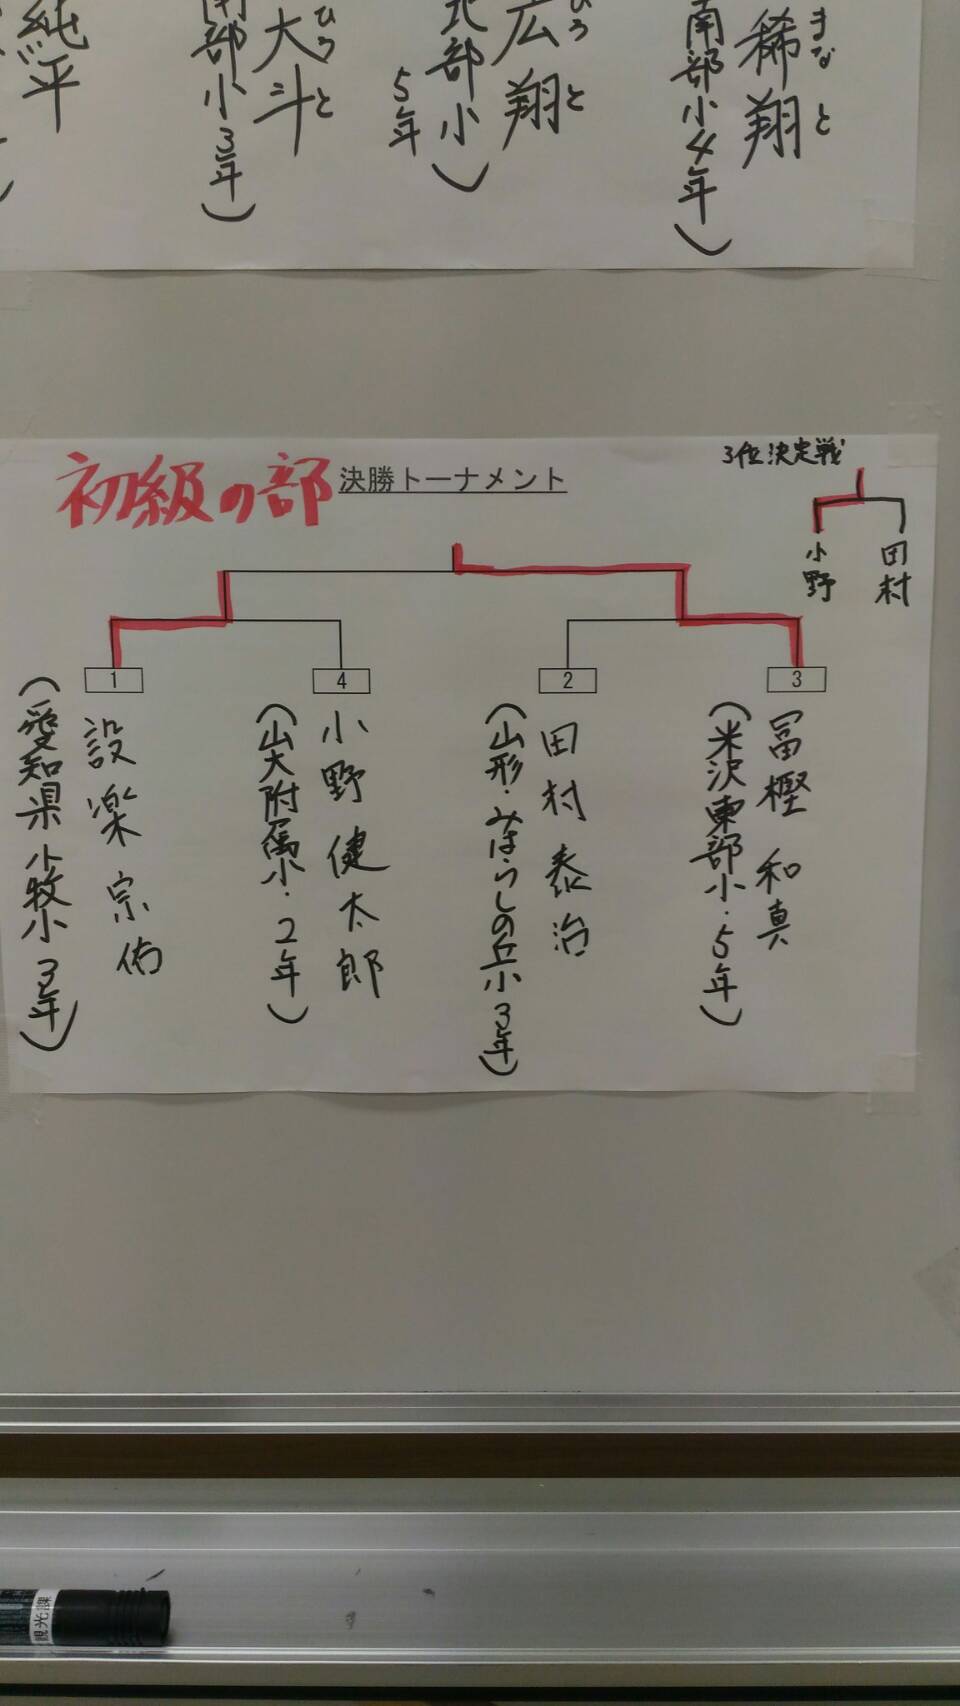 稀翔
まなと
南部小4年)
広翔
ひろと
北部小)
5年
大斗
ひろと
南部小3年)
純平
初級の部 決勝トーナメント
3位決定戦
小野
田村
1
4
2
3
冨樫 和真
(米沢東部小・5年)
田村 泰治
(山形・みはらしの丘小 3年)
小野 健太郎
(山大附属小・2年)
設楽 宗侑
(愛知県 小牧小 3年)
観光課